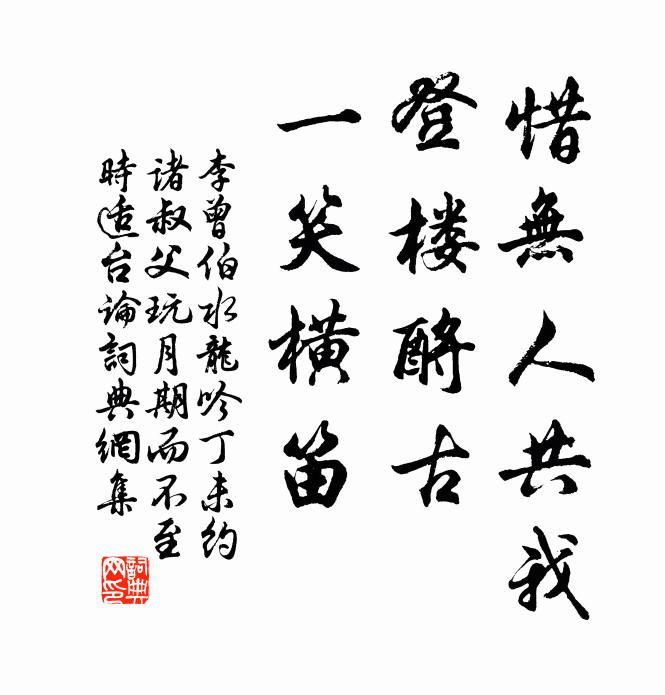 惜無人共我
登楼酹古
一笑橫笛
李曾伯水龍吟丁未約
諸叔父玩月期而不至
時适台論詞典網集
詞典网印